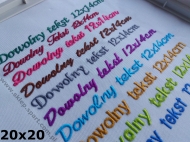 Dowolny tekst 12x14cm
Dowolny Tekst 12x14cm
Dowolny tekst 12x14cm
Dowolny tekst 12x14cm
Dowolny tekst 12x14cm
Dowolny tekst 12x14cm
Dowolny tekst 12x14cm
Dowolny tekst 12x14cm
Dowolny tekst
20x20